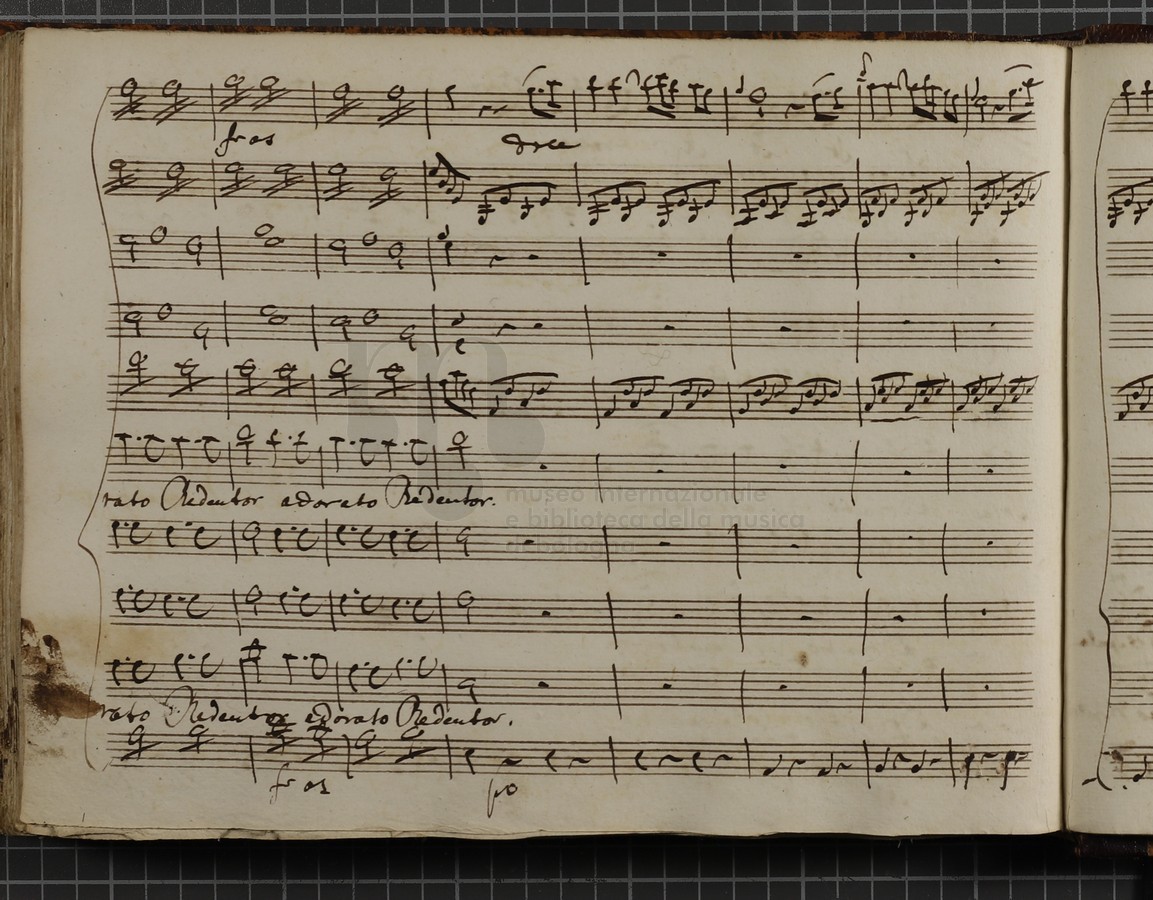 dolce
rato Redentor adorato Redentor.
museo internazionale
e biblioteca della musica
di bologna
rato Redentor adorato Redentor.
po